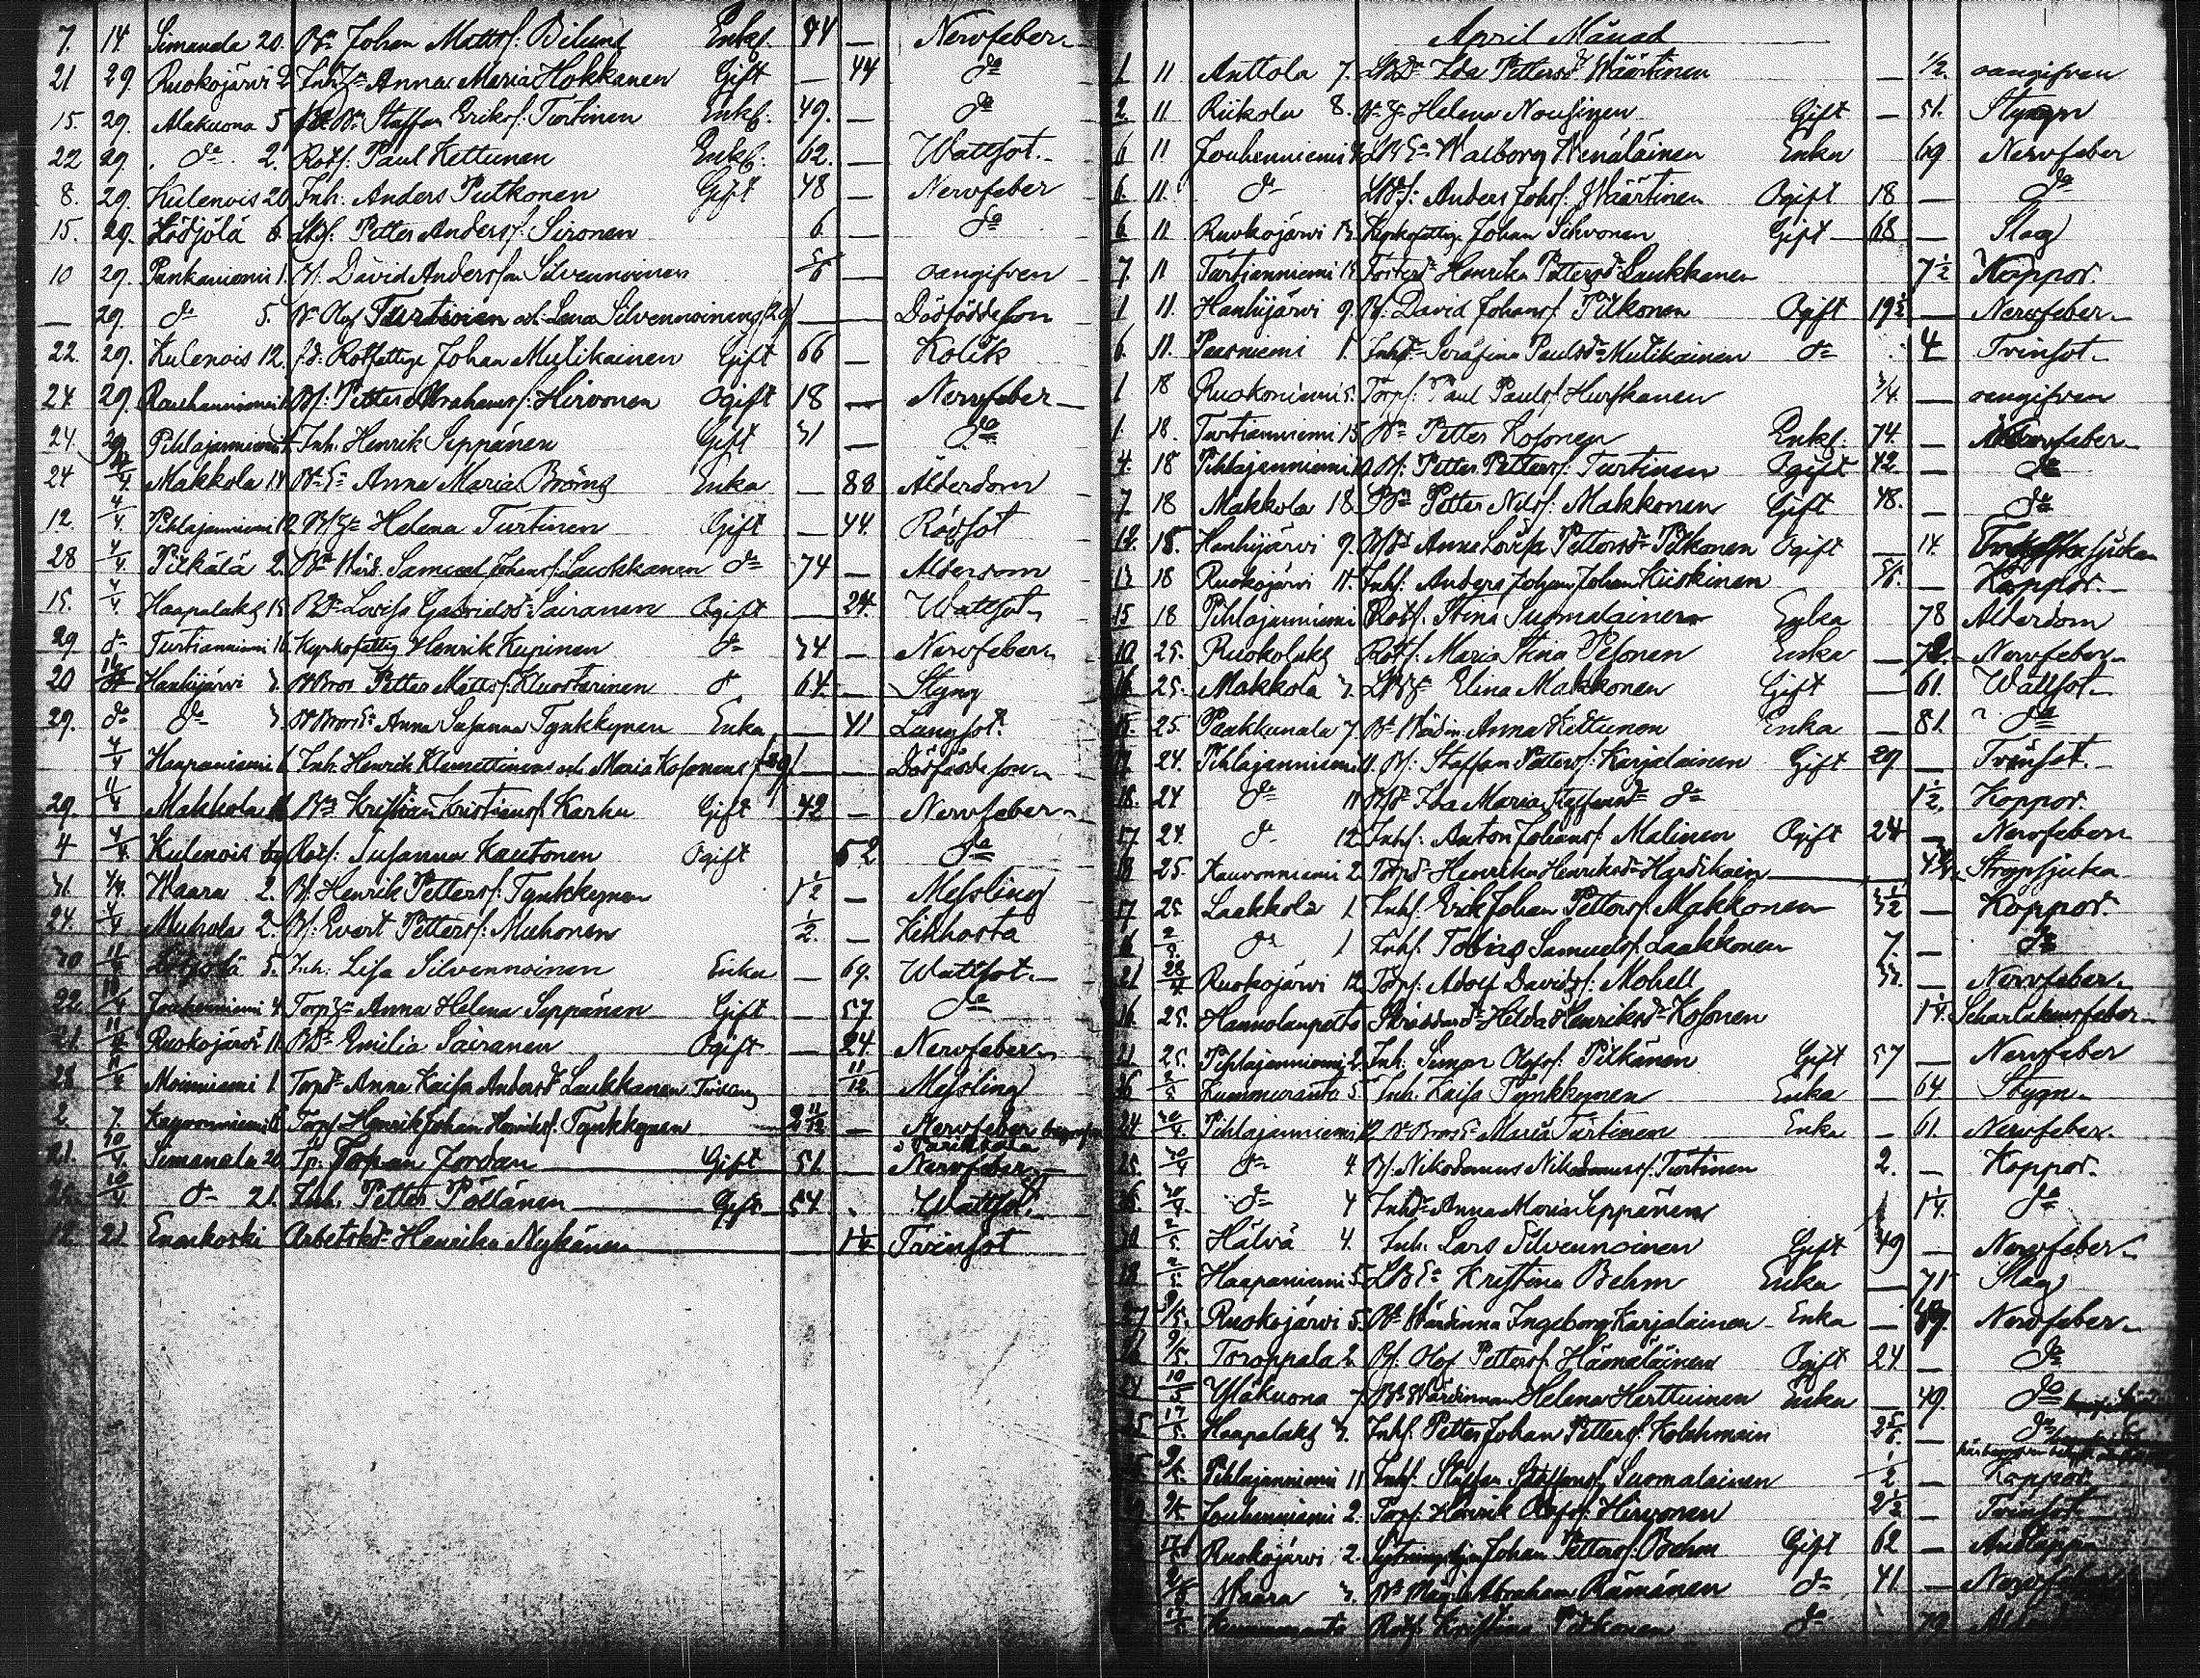 7. 14. Simanala 20. Bn Johan Mattsf: Bilund Enkl. 44 — Nervfeber
21 29. Ruokojärvi 2 Anna Maria Hokkanen Gift — 44 do
15. 29. Alakuona 5 Bn Staffan Eriksf. Turtinen Enkl. 49. — do
22 29. do 2. Rotf: Paul Kettunen Enkl. 62. — Wattsot.
8. 29. Kulenois 20 Inh. Anders Putkonen Gift 48 — Nervfeber
15. 29. 6. Petter Andersf. Sironen 6 — do
10 29. Pankaniemi 1. Bf. David Andersson Silvennoinen 5/6 — oangifven
— 29. do 5. Bn Olof Turtinen och Lena Silvennoinens — — Dödfödde son
22. 29. Kulenois 12. fd. Rotfattige Johan Mulikainen Gift 66 — Kolik
24 29. Rauhaniemi Bf: Petter Abrahamsf: Hirvonen Ogift 18 — Nervfeber
24. 29 Pihlajaniemi Inh. Henrik Seppänen Gift 31 — do
24 4/4 Makkola 14 Bn En Anna Maria Bröms Enka — 88 Ålderdom
12. 4/4 Pihlajaniemi 12 Helena Turtinen Gift — 44. Rödsot
28 4/4 Pitkälä 2. Bn Wärd. Samuel Johansf: Laukkanen do 74 — Ålderdom
15. 4/4 Haapalaks 15. Bdr Lovisa Gabrielsdr Sairanen Ogift — 24. Wattsot
29. do Turtianniemi 16. Kyrkofattig Henrik Kupinen do 74 — Nervfeber
20 Hanhijärvi 3. Bn Bror Petter Mattsf: Kluostarinen do 64. — Styng
29. do do 3. Anna Susanna Tynkkynen Enka — 41 Lungsot.
4/4 Haapaniemi Inh. Henrik Klemettinens och Maria Kosonens — — Dödfödde son
29. 11/4 Makkola Bn Kristian Kristiansf. Karhu Gift 42 — Nervfeber
4 4/4 Kulenois Rotf: Susanna Kautonen Ogift 52 do
31. 4/4 Waara 2. Bf. Henrik Pettersf: Tynkkynen 1 1/2 — Messling
24. 4/4 Muhola 2. Bf. Evert Pettersf: Muhonen 1/2. — Kikhosta
30 11/4 5. Inh. Lisa Silvennoinen Enka — 69. Wattsot.
22. Jouhenniemi 4 Anna Helena Seppänen Gift — 57 do
21. 11/4 Ruokojärvi 11. Bdr Emilia Sairanen Ogift — 24. Nervfeber
28 Moinniemi 1. Torpdr Anna Kaisa Andersdr Laukkanen Tvilling 11/12 Messling
2. 7. Kauvonniemi Torpf Henrik Johan Henriksf. Tynkkynen 2 11/12 — Nervfeber begrafven i Parikkala
21. 10/4. Simanala 20. Johan Jordan Gift 51. — Nervfeber
10/4 do 21. Inh. Petter Pöllänen Gift 54 Wattsot.
12. 21 Enonkoski Arbetskdr Henrika Nykänen 1 1/4 Tvinsot
April Månad
1 11 Anttola 7. Ida Pettersdr Wäärtinen — 1/2. oangifven
2. 11 Riikola 8. Helena Nousiinen Gift — 51. Styng
6 11 Jouhenniemi Walborg Wenäläinen Enka 69 Nervfeber
6. 11. do Anders Johsf. Wäärtinen Ogift 18 — do
6 11 Ruokojärvi 13. Kyrkofattige Johan Sihvonen Gift 68 — Slag
7. 11 Turtianniemi 15 Fosterdr Henrika Pettersdr Laukkanen 7 1/2 Koppor.
1 11. Hanhijärvi 9. Bf. David Johansf. Pitkonen Ogift 19 1/2 — Nervfeber
6. 11. Paasniemi 1. Inhdr Serafina Paulsdr Mulikainen do 4 Tvinsot.
1 18 Ruokoniemi 5. Torpf: Paul Paulsf Hurskanen 3/4. — oangifven
1. 18. Turtianniemi 15 Bn Petter Kosonen Enkl. 74. — Nervfeber
4. 18 Pihlajaniemi 12 Bf: Petter Pettersf: Turtinen Ogift 42 — do
7 18 Makkola 18. Bn Petter Nilsf: Makkonen Gift 48. — do
12. 18. Hanhijärvi 9. Anna Lovisa Pettersdr Pitkonen Ogift — 14.
13 18 Ruokojärvi 17. Inhf. Anders Johan Johan Kiiskinen 5/6. — Koppor.
15 18 Pihlajaniemi Rotf. Stina Suomalainen Enka 78 Ålderdom
19. 25. Ruokolaks Rotf. Maria Stina Pesonen Enka — Nervfeber
16. 25. Makkola 3. Elina Makkonen Gift — 61. Wattsot.
15. 25. Paakkunala 7. Bn Wärdin. Anna Kettunen Enka — 81. do
24. Pihlajaniemi 11. Bf: Staffan Pettersf: Karjalainen Gift 29 — Tvinsot.
18. 24 do 11 Bdr Ida Maria Staffansdr do 1 1/2. Koppor.
17 24. do 12. Inhf: Anton Johansf. Malinen Ogift 24 — Nervfeber
18 25. Kauvonniemi 2. Torpdr Henrika Henriksdr Hardikain Strypsjuka
17 25 Laakkola 1 Inhf. Erik Johan Pettersf: Makkonen — Koppor.
do 1 Inhf. Tobias Samuelsf. Laakkonen 7. — do
21 28/4 Ruokojärvi 12 Torpf. Adolf Davidsf: Mohell — Nervfeber
16. 25. Hannolanpelto Skräddardr Hilda Henriksdr Kosonen 14. Scharlakansfeber
21 25. Pihlajaniemi 2. Inh. Simon Olofsf. Pitkänen Gift 57 — Nervfeber
Kummeranta 5. Inh. Kaisa Tynkkynen Enka — 64. Stygn.
24 30/4. Pihlajaniemi 12 Maria Turtinen Enka — 61. Nervfeber.
25. 30/4 do 4. Bf. Nikodemus Nikodemusf. Turtinen 2. — Koppor.
30/4 do 4 Inhdr Anna Maria Seppänen 1 1/4. do
2/5 Hälvä 4. Inh. Lars Silvennoinen Gift 49 — Nervfeber
18 2/5 Haapaniemi 5. Kristina Behm Enka — 71 Slag
27 9/5. Ruokojärvi 5. Bn Wärdinna Ingeborg Karjalainen Enka — Nervfeber
9/5. Toroppala 2. Bf. Olof Pettersf. Hämäläinen Ogift 24 — do
24 10/5 Yläkuona 7. Bn Wärdinnan Helena Harttuinen Enka — 49 do
25 17/5. Haapalaks 3. Inhf. Petter Johan Pettersf. Kolehmain 2 5/6. — do
Pihlajaniemi 11 Inhf. Staffan Staffansf. Suomalainen 1/2 — Koppor
Jouhenniemi 2. Torpf. Henrik Olofsf. Hirvonen 2 1/2 — Tvinsot
Ruokojärvi 2. Johan Pettersf. Behm Gift 62 — Andtäppa
Waara 3. Bn Måg Abraham Rämänen do 41. — Nervfeber
Kummeranta Rotf. Kristina Pitkonen do 79